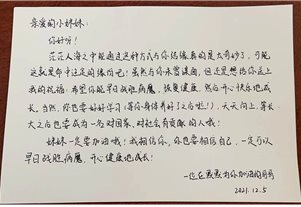 亲爱的小妹妹:
你好呀!
茫茫人海之中能通过这种方式与你结缘真的是太奇妙了,可能
这就是命中注定的缘份吧!虽然与你未曾谋面,但还是想给你送上
我的祝福:希望你能早日战胜病魔,恢复健康,然后开心快乐地成
长。当然,你也要好好学习(等你身体养好了之后啦!),天天向上,等长
大之后也要成为一名对国家、对社会有贡献的人哦!
妹妹一定要加油哦!我相信你,你也要相信自己,一定可以
早日战胜病魔,开心健康地成长!
一位在默默为你加油的
2021.12.5